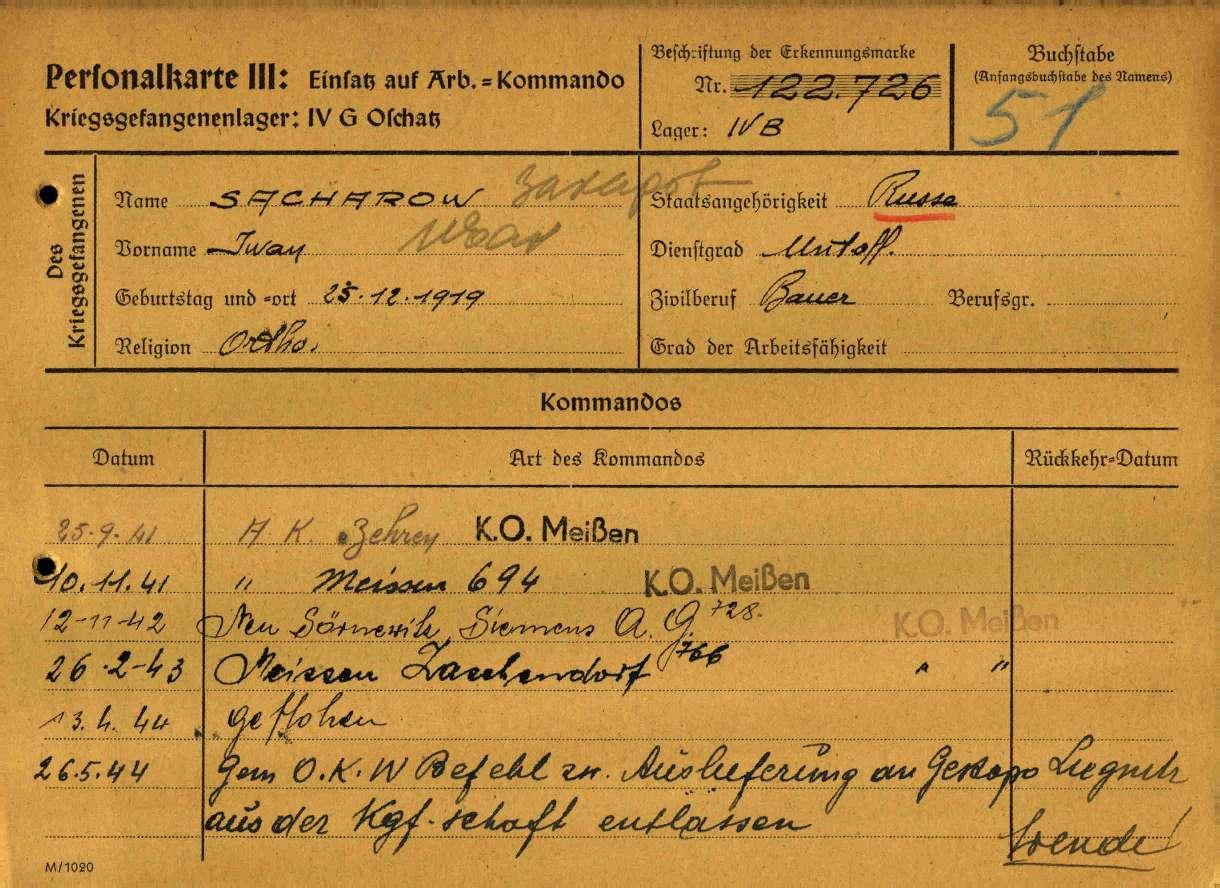 Personalkarte III: Einsatz auf Arb.=Kommando
Kriegsgefangenenlager: IV G Oschatz
Beschriftung der Erkennungsmarke
Nr. 122.726
Lager: IV B
Buchstabe
(Anfangsbuchstabe des Namens)
51
Des Kriegsgefangenen
Name SACHAROW Захаров
Vorname Iwan Иван
Geburtstag und =ort 25.12.1919
Religion Ortho.
Staatsangehörigkeit Russe
Dienstgrad Untoff.
Zivilberuf Bauer Berufsgr.
Grad der Arbeitsfähigkeit
Kommandos
Datum Art des Kommandos Rückkehr=Datum
25.9.41 A. K. Zehren K.O. Meißen
10.11.41 " Meissen 694 K.O. Meißen
12-11-42 Neu Sörnewitz, Siemens A. G. 728. K.O. Meißen
26.2-43 Meissen Zaschendorf 766 " "
13.4.44 geflohen
26.5.44 Gem O.K.W Befehl zw. Auslieferung an Gestapo Liegnitz
aus der Kgf.-schaft entlassen
wende!
M/1020